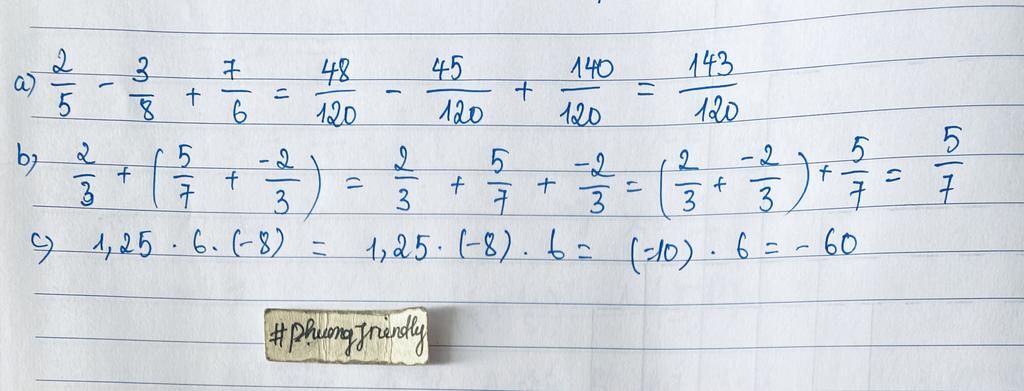 a) 2/5 - 3/8 + 7/6 = 48/120 - 45/120 + 140/120 = 143/120
b) 2/3 + (5/7 + -2/3) = 2/3 + 5/7 + -2/3 = (2/3 + -2/3) + 5/7 = 5/7
c) 1,25 . 6. (-8) = 1,25. (-8) . 6 = (-10) . 6 = - 60
#phuongfriendly